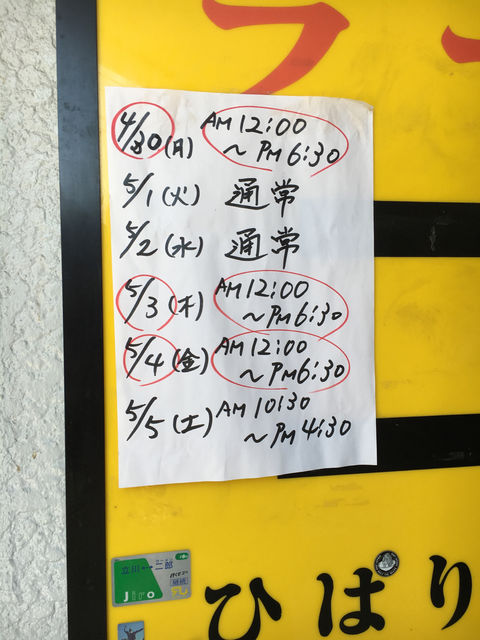 4/30(月) AM 12:00
～PM 6:30
5/1(火) 通常
5/2(水) 通常
5/3(木) AM 12:00
～PM 6:30
5/4(金) AM 12:00
～PM 6:30
5/5(土) AM 10:30
～PM 4:30
立川 二郎
Jiro
ひばり